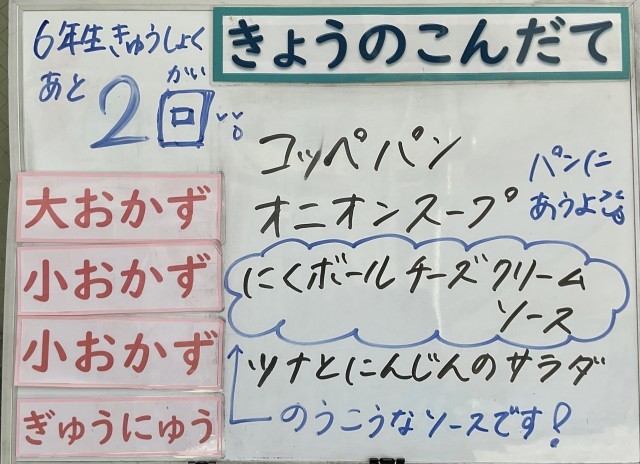 6年生きゅうしょく
あと2回
かい
きょうのこんだて
コッペパン
大おかず
オニオンスープ
パンに
あうよ
小おかず
にくボールチーズクリーム
ソース
小おかず
ツナとにんじんのサラダ
ぎゅうにゅう
のうこうなソースです!